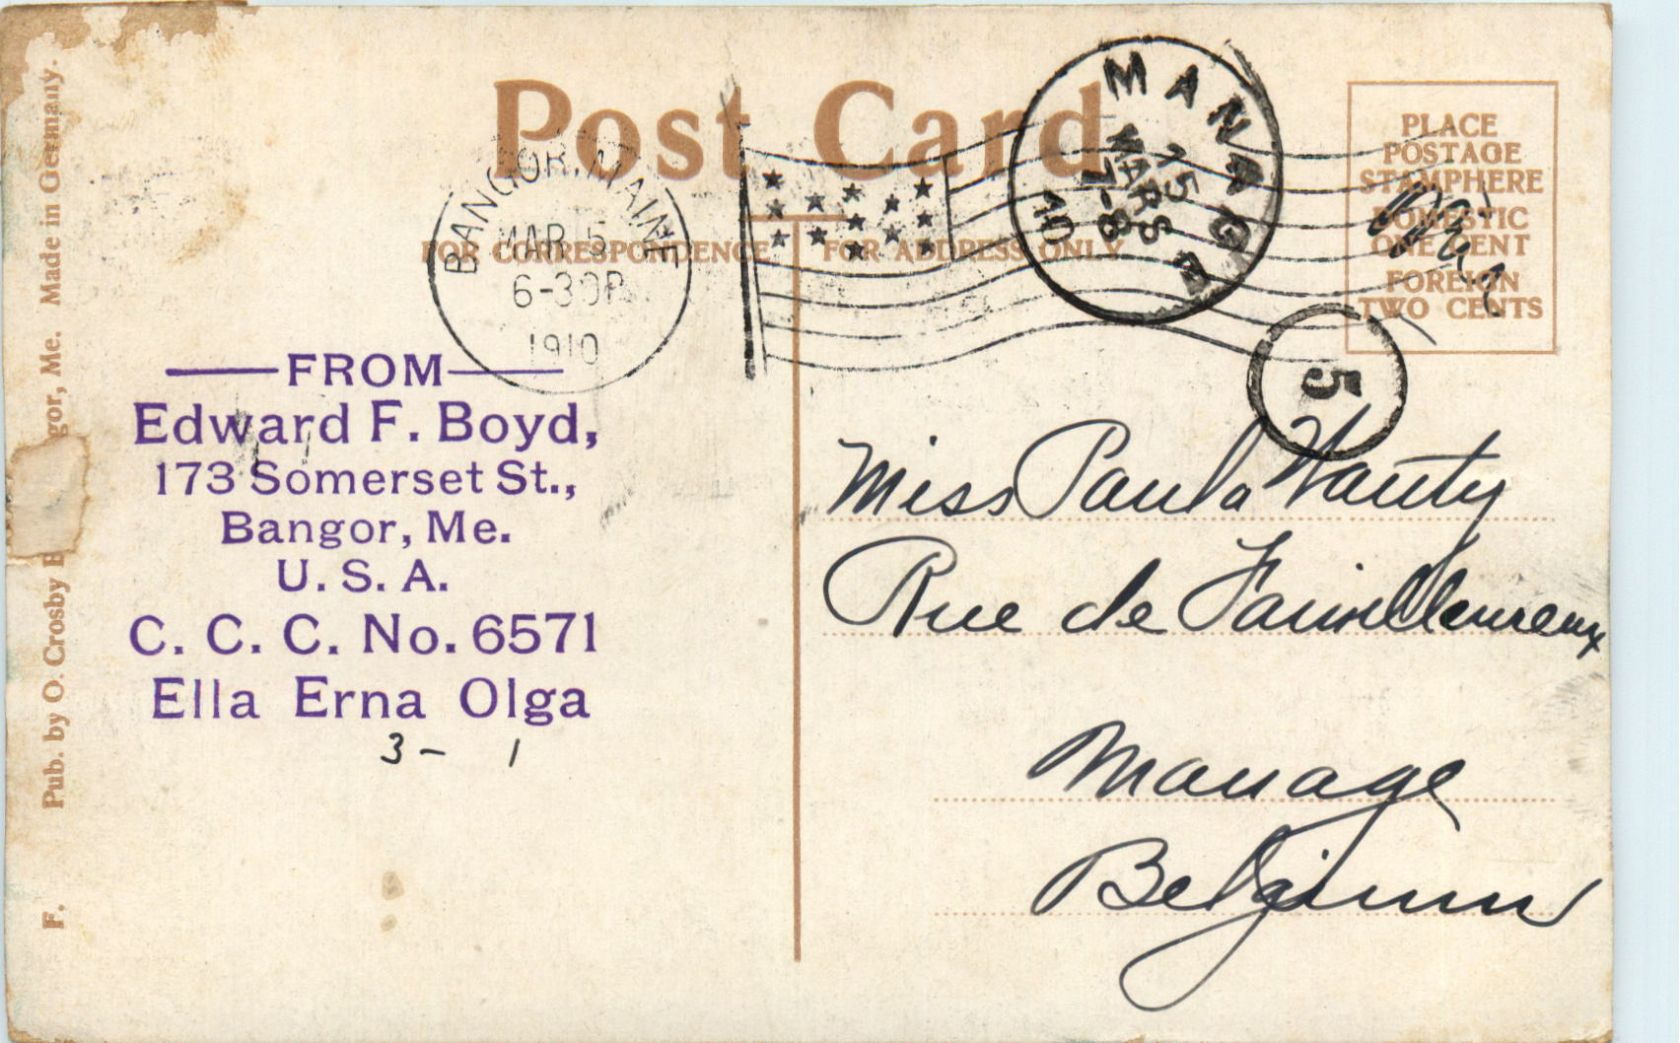 Post Card
FOR CORRESPONDENCE
FOR ADDRESS ONLY
PLACE
POSTAGE
STAMP HERE
DOMESTIC
ONE CENT
FOREIGN
TWO CENTS
BANGOR, MAINE
MAR 5
6-30P
1910
MANAGE
15
MARS
7-8
10
5
FROM
Edward F. Boyd,
173 Somerset St.,
Bangor, Me.
U. S. A.
C. C. C. No. 6571
Ella Erna Olga
3 - 1
Miss Paula Wauty
Rue de
Manage
Belgium
F. Pub. by O. Crosby gor, Me. Made in Germany.